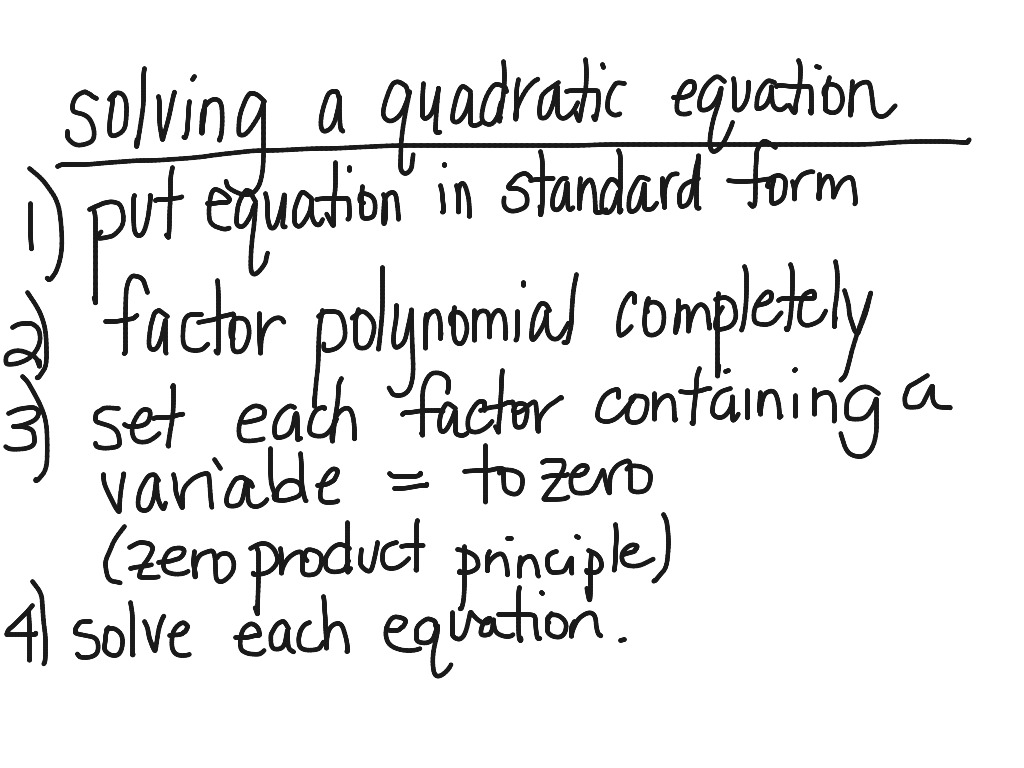 solving a quadratic equation
1) put equation in standard form
2) factor polynomial completely
3) set each factor containing a
variable = to zero
(zero product principle)
4) solve each equation.